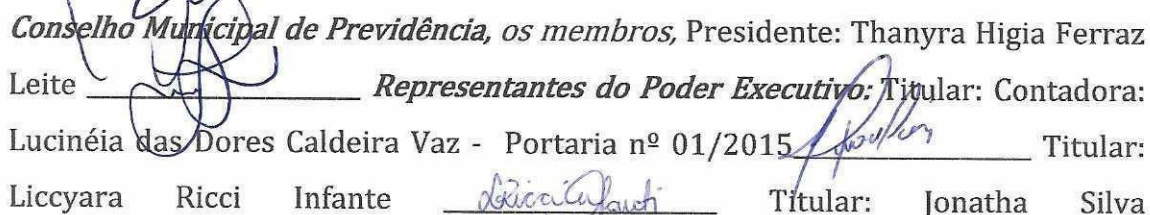 Conselho Municipal de Previdência, os membros, Presidente: Thanyra Higia Ferraz
Leite ____________________ Representantes do Poder Executivo: Titular: Contadora:
Lucinéia das Dores Caldeira Vaz - Portaria nº 01/2015 ____________________ Titular:
Liccyara Ricci Infante ____________________ Titular: Jonatha Silva